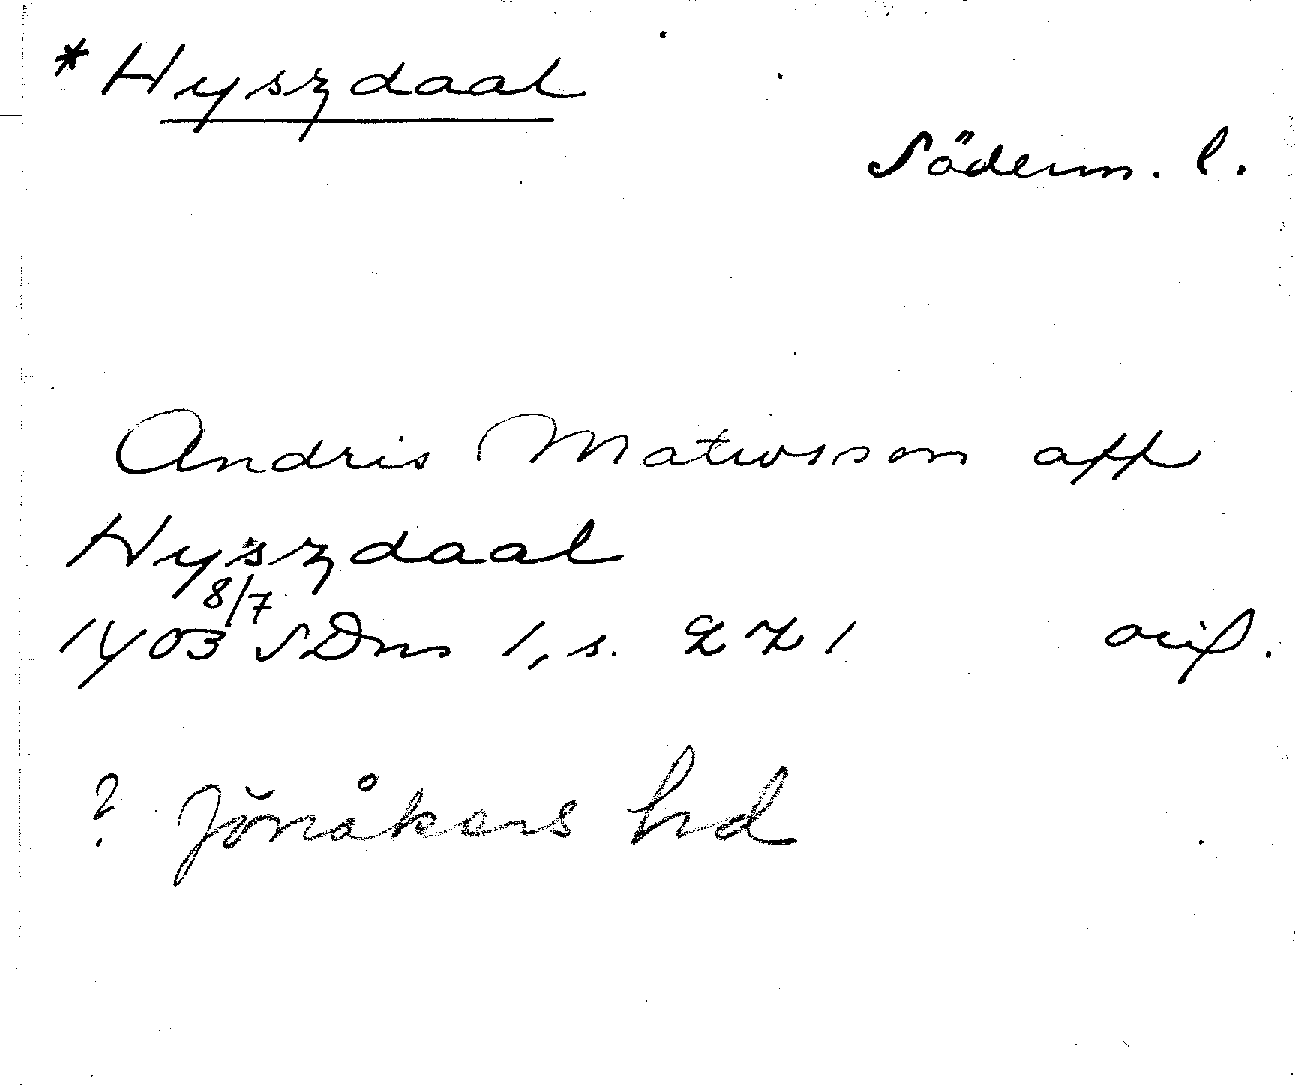 * Hyszdaal
Söderm. l.
Andris Matiosson aff
Hyszdaal
1403 8/7 SDns 1, s. 221 orig.
? Jönåkers hd